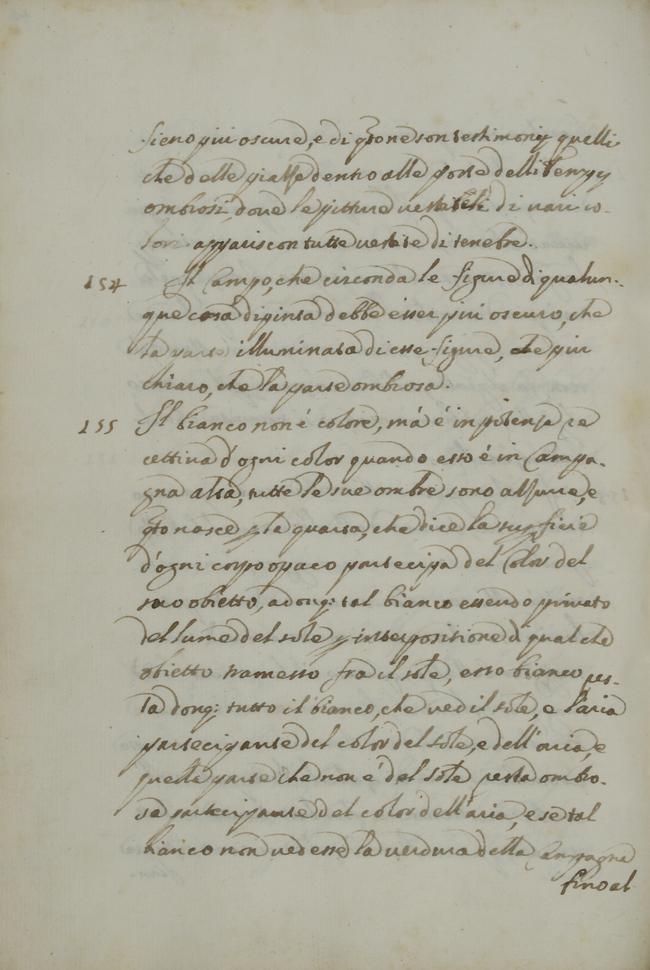 sieno piu oscure, e di qto ne son testimonij quelli
che delle piasse dentro alle porte delli Tempij
ombrosi, dove le pitture vestite di varii co-
lori appariscon tutte vestite di tenebre.
154 Il Campo, che circonda le figure di qualun-
que cosa dipinta debbe esser più oscuro, che
la parte illuminata di esse figure, e più
chiaro, che la parte ombrosa.
155 Il bianco non é colore, má é in potenza re
cettiva d'ogni color quando esso é in Campa-
gna alta, tutte le sue ombre sono assurre, e
qto nasce p la quarta, che dice la superficie
d'ogni corpo opaco partecipa del Color del
suo obietto, adonq: tal bianco essendo privato
del lume del sole p interpositione di qualche
obietto tramesso fra il sole, e esso bianco res-
ta donq: tutto il bianco, che ved il sole, e l'aria
partecipante del color del sole, e dell'aria, e
quella parte che non é del sole resta ombro-
sa partecipante del color dell'aria, e se tal
bianco non vedesse la verdura della Campagna
fino al